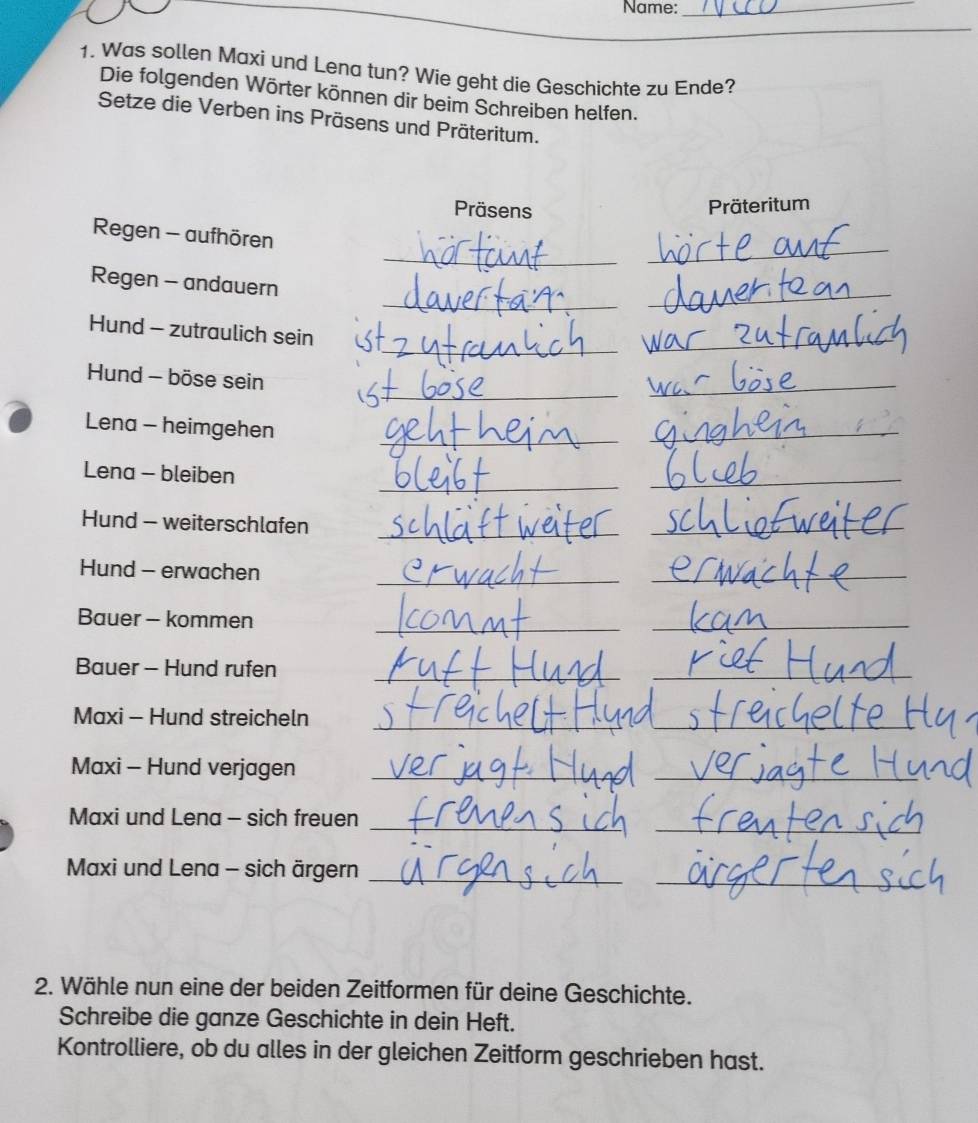 Name: Nico
1. Was sollen Maxi und Lena tun? Wie geht die Geschichte zu Ende?
Die folgenden Wörter können dir beim Schreiben helfen.
Setze die Verben ins Präsens und Präteritum.
Präsens Präteritum
Regen – aufhören hörtauf hörte auf
Regen – andauern dauertan dauerte an
Hund – zutraulich sein ist zutraulich war zutraulich
Hund – böse sein ist böse war böse
Lena – heimgehen geht heim ging heim
Lena – bleiben bleibt blieb
Hund – weiterschlafen schläft weiter schlief weiter
Hund – erwachen erwacht erwachte
Bauer – kommen kommt kam
Bauer – Hund rufen ruft Hund rief Hund
Maxi – Hund streicheln streichelt Hund streichelte Hun
Maxi – Hund verjagen verjagt Hund verjagte Hund
Maxi und Lena – sich freuen freuen sich freuten sich
Maxi und Lena – sich ärgern ärgen sich ärgerten sich
2. Wähle nun eine der beiden Zeitformen für deine Geschichte.
Schreibe die ganze Geschichte in dein Heft.
Kontrolliere, ob du alles in der gleichen Zeitform geschrieben hast.